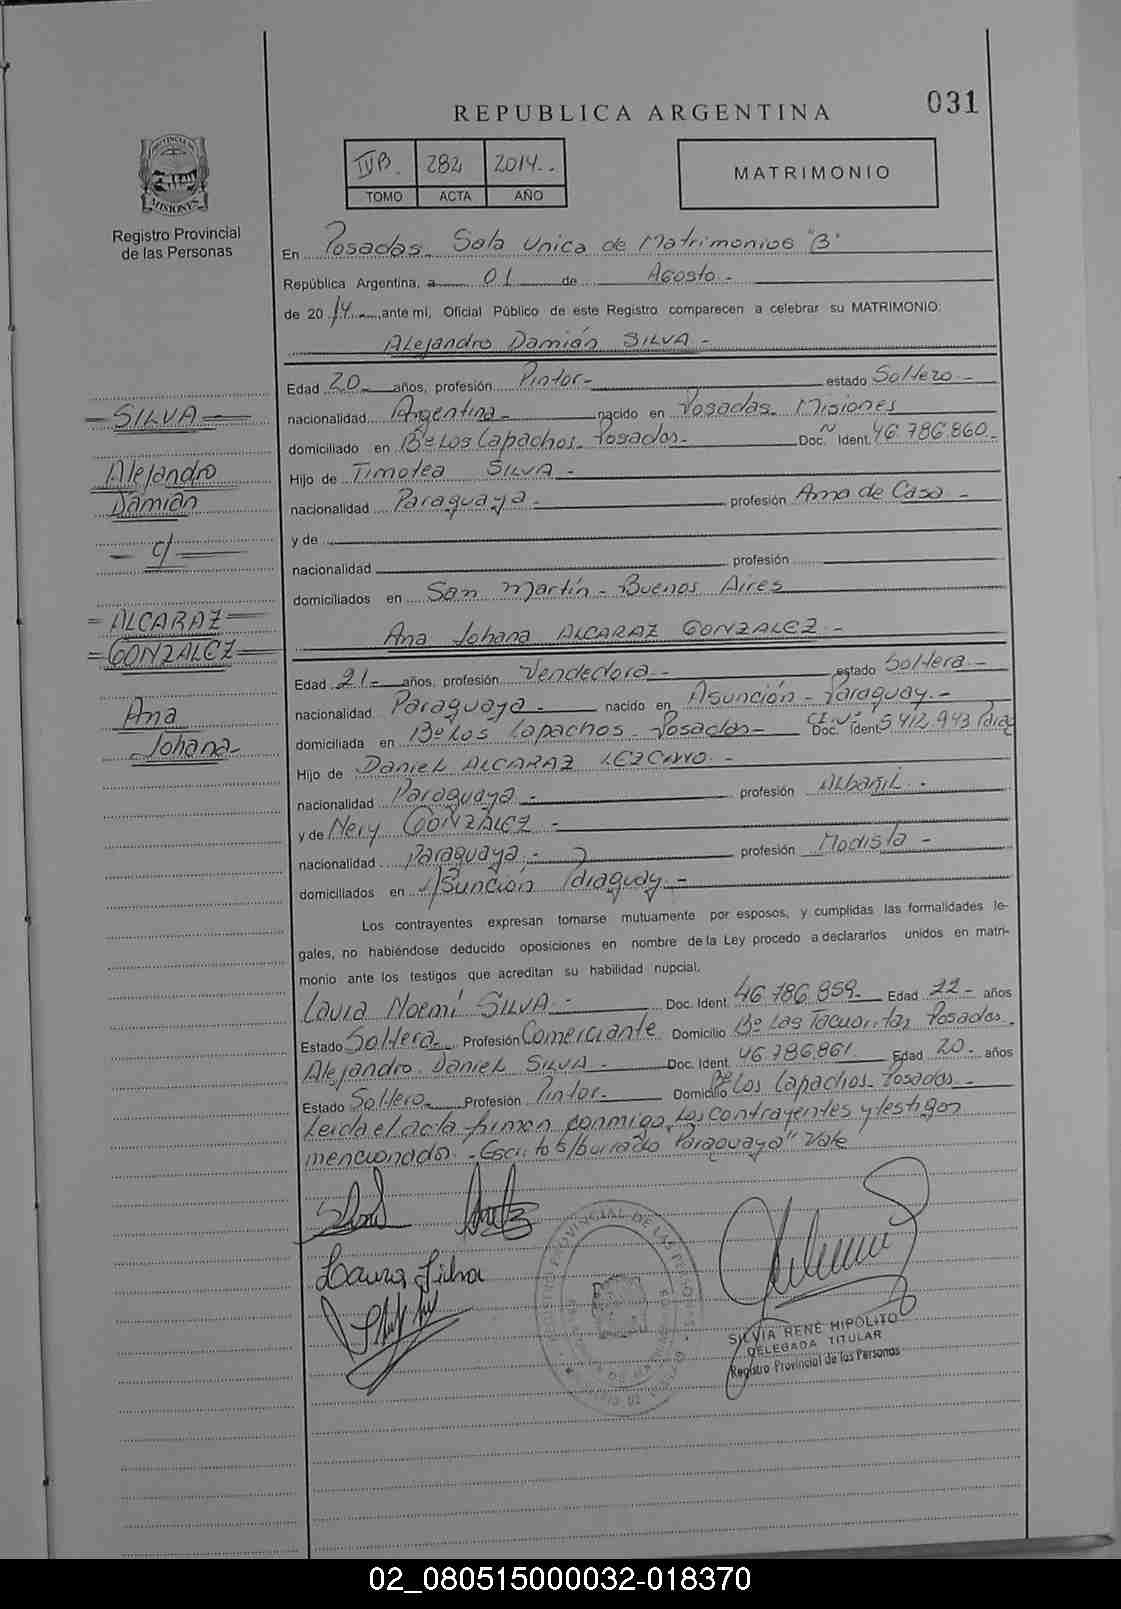 031
REPUBLICA ARGENTINA
IVB. 282 2014..
TOMO ACTA AÑO
MATRIMONIO
PROVINCIA DE
MISIONES
Registro Provincial
de las Personas
En Posadas. Sala Unica de Matrimonios "B"
República Argentina, a 01 de Agosto.-
de 2014, ante mí, Oficial Público de este Registro comparecen a celebrar su MATRIMONIO:
Alejandro Damián SILVA -
Edad 20- años, profesión Pintor- estado Soltero -
nacionalidad Argentina - nacido en Posadas. Misiones
domiciliado en Bº Los Lapachos. Posadas- Doc. Ident. 46.786.860-
Hijo de Timotea SILVA -
nacionalidad Paraguaya - profesión Ama de Casa -
y de
nacionalidad profesión
domiciliados en San Martín - Buenos Aires
Ana Johana ALCARAZ GONZALEZ -
Edad 21- años, profesión Vendedora - estado Soltera -
nacionalidad Paraguaya - nacido en Asunción - Paraguay.-
domiciliada en Bº Los Lapachos. Posadas- C.I.Nº Doc. Ident 5.412.943
Hijo de Daniel ALCARAZ LEZCANO -
nacionalidad Paraguaya - profesión Albañil -
y de Nery GONZALEZ -
nacionalidad Paraguaya - profesión Modista -
domiciliados en Asunción Paraguay.-
Los contrayentes expresan tomarse mutuamente por esposos, y cumplidas las formalidades le-
gales, no habiéndose deducido oposiciones en nombre de la Ley procedo a declararlos unidos en matri-
monio ante los testigos que acreditan su habilidad nupcial.
Laura Noemí SILVA - Doc. Ident. 46.786.859- Edad 22- años
Estado Soltera- Profesión Comerciante Domicilio Bº Las Tacuaritas Posadas.
Alejandro Daniel SILVA - Doc. Ident. 46.786.861 Edad 20- años
Estado Soltero- Profesión Pintor- Domicilio Bº Los Lapachos. Posadas -
Leida el acta firman conmigo, los contrayentes y testigos
mencionado. -Escrito s/burrado "Paraguaya" Vale
Laura Silva
REGISTRO PROVINCIAL DE LAS PERSONAS
SILVIA RENÉ HIPOLITO
DELEGADA TITULAR
Registro Provincial de las Personas
= SILVA =
Alejandro
Damián
- c/ -
= ALCARAZ =
= GONZALEZ =
Ana
Johana-
02_080515000032-018370